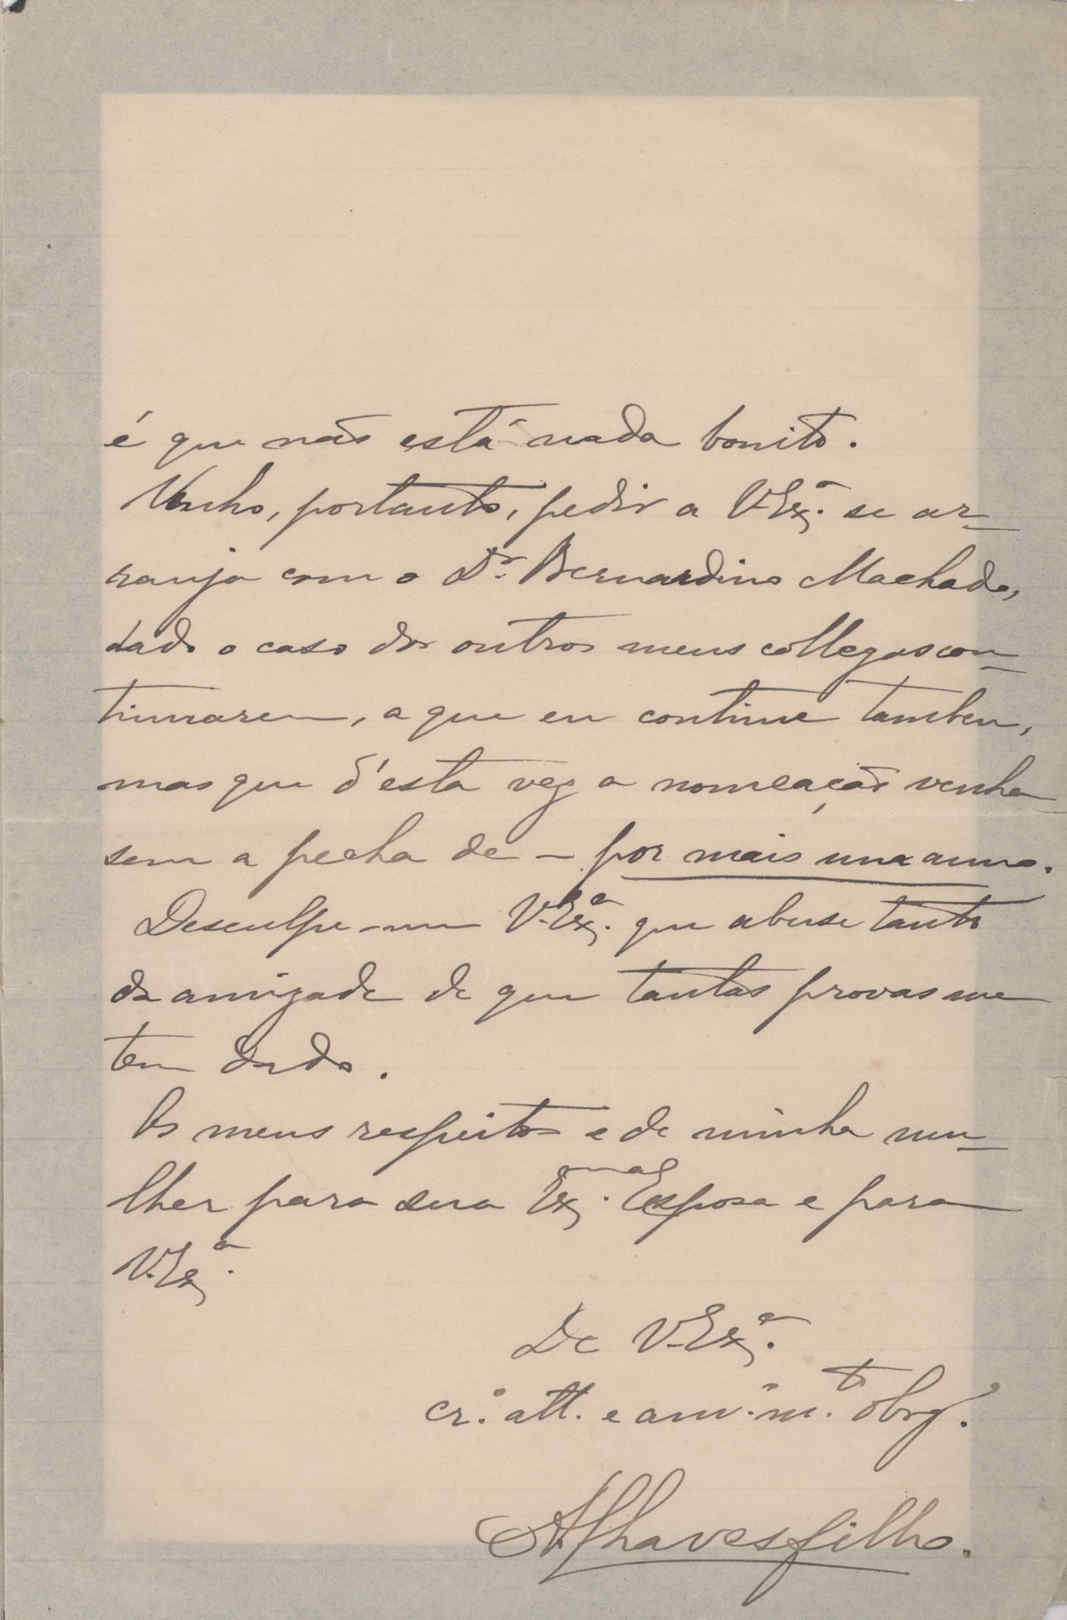 é que não está nada bonito.
Venho, portanto, pedir a V. Exª. se ar-
ranja com o Dr. Bernardino Machado,
dado o caso dos outros meus collegas con-
tinuarem, a que eu continue tambem,
mas que d'esta vez a nomeação venha
sem a pecha de — por mais um anno.
Desculpe-me V. Exª. que abuse tanto
da amizade de que tantas provas me
tem dado.
Os meus respeitos e de minha mu-
lher para sua Exma. Esposa e para
V. Exª.
De V. Exª.
cr.º att. e am.º m.to obrg.º
A Chaves filho.